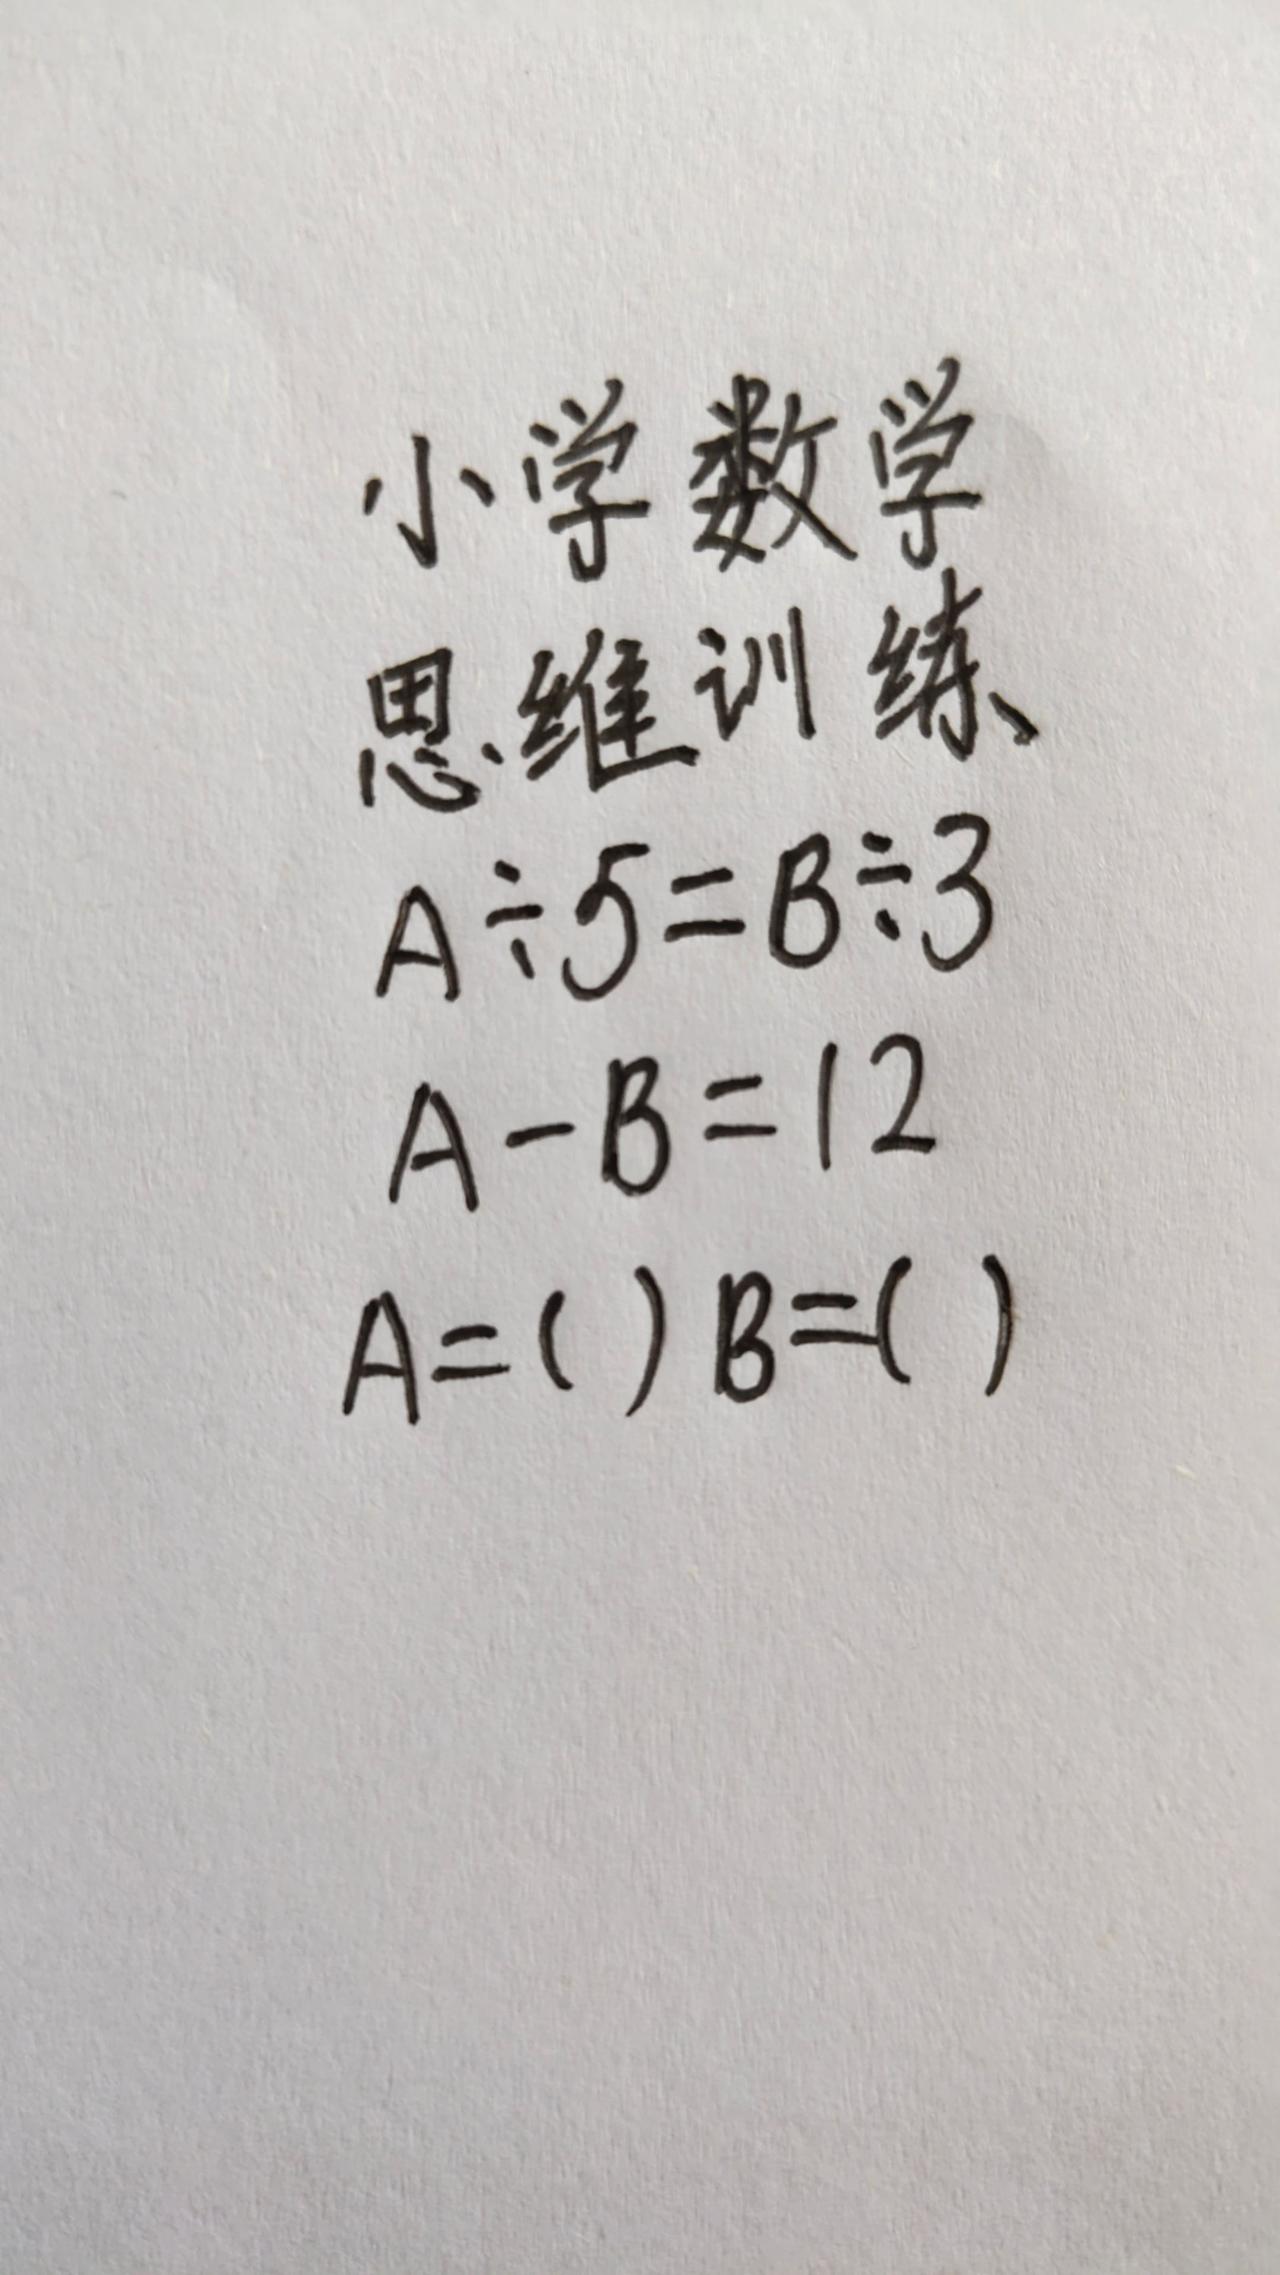 小学数学
思维训练
A÷5=B÷3
A-B=12
A=( ) B=( )